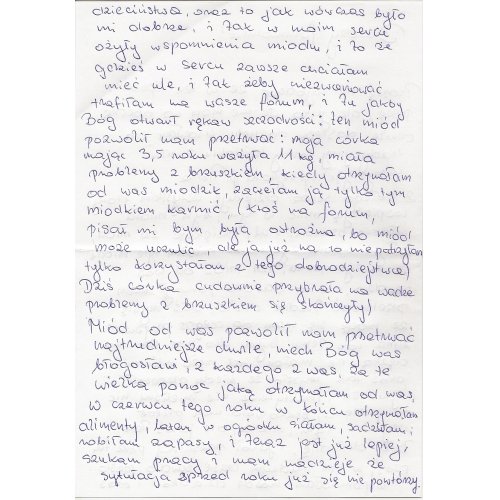 dzieciństwa, oraz to jak wówczas było
mi dobrze, i tak w moim sercu
ożyły wspomnienia miodu, i to że
gdzieś w sercu zawsze chciałam
mieć ule, i tak żeby niezwariować
trafiłam na wasze forum, i tu jakby
Bóg otwarł rękaw szczodrości: ten miód
pozwolił nam przetrwać: moja córka
mając 3,5 roku ważyła 11 kg, miała
problemy z brzuszkiem, kiedy otrzymałam
od was miodzik, zaczęłam ją tylko tym
miodkiem karmić, (ktoś na forum,
pisał mi bym była ostrożna, bo miód
może uczulić, ale ja już na to nie patrzyłam
tylko korzystałam z tego dobrodziejstwa)
Dziś córka cudownie przybrała na wadze
problemy z brzuszkiem się skończyły)
Miód od was pozwolił nam przetrwać
najtrudniejsze chwile, niech Bóg was
błogosławi, z każdego z was, za te
wielką pomoc jaką otrzymałam od was,
w czerwcu tego roku w końcu otrzymałam
alimenty, latem w ogródku siałam, sadziłam,
robiłam zapasy, i teraz jest już lepiej,
szukam pracy i mam nadzieje że
sytułacja sprzed roku już się nie powtórzy.